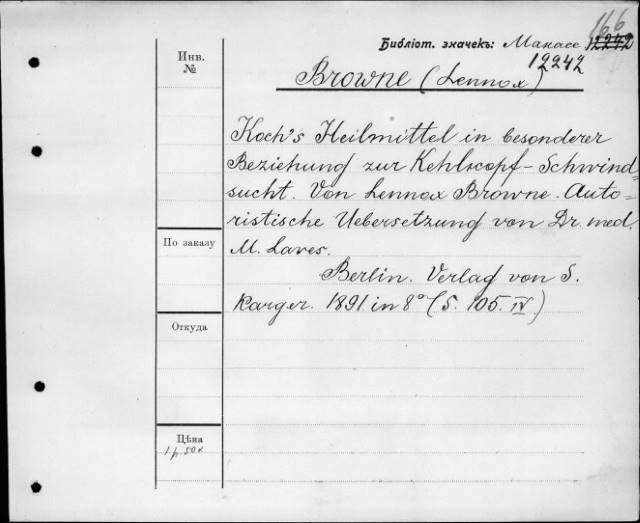 166
Библіот. значекъ: Манасе 12242
12242
Инв.
№
Browne (Lennox)
Koch's Heilmittel in besonderer
Beziehung zur Kehlkopf-Schwind=
sucht. Von Lennox Browne. Auto=
ristische Uebersetzung von Dr. med.
M. Laves.
По заказу
Berlin. Verlag von S.
Karger. 1891. in 8° (S. 105. IV)
Откуда
Цѣна
1 р. 50 к.